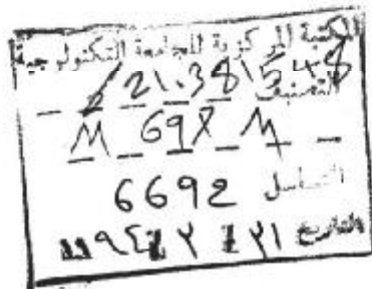 المكتبة المركزية للجامعة التكنولوجية
التصنيف 621.381548
M 69X M
التسلسل 6692
التاريخ ٢١ / ٢ / ١٩٩٤